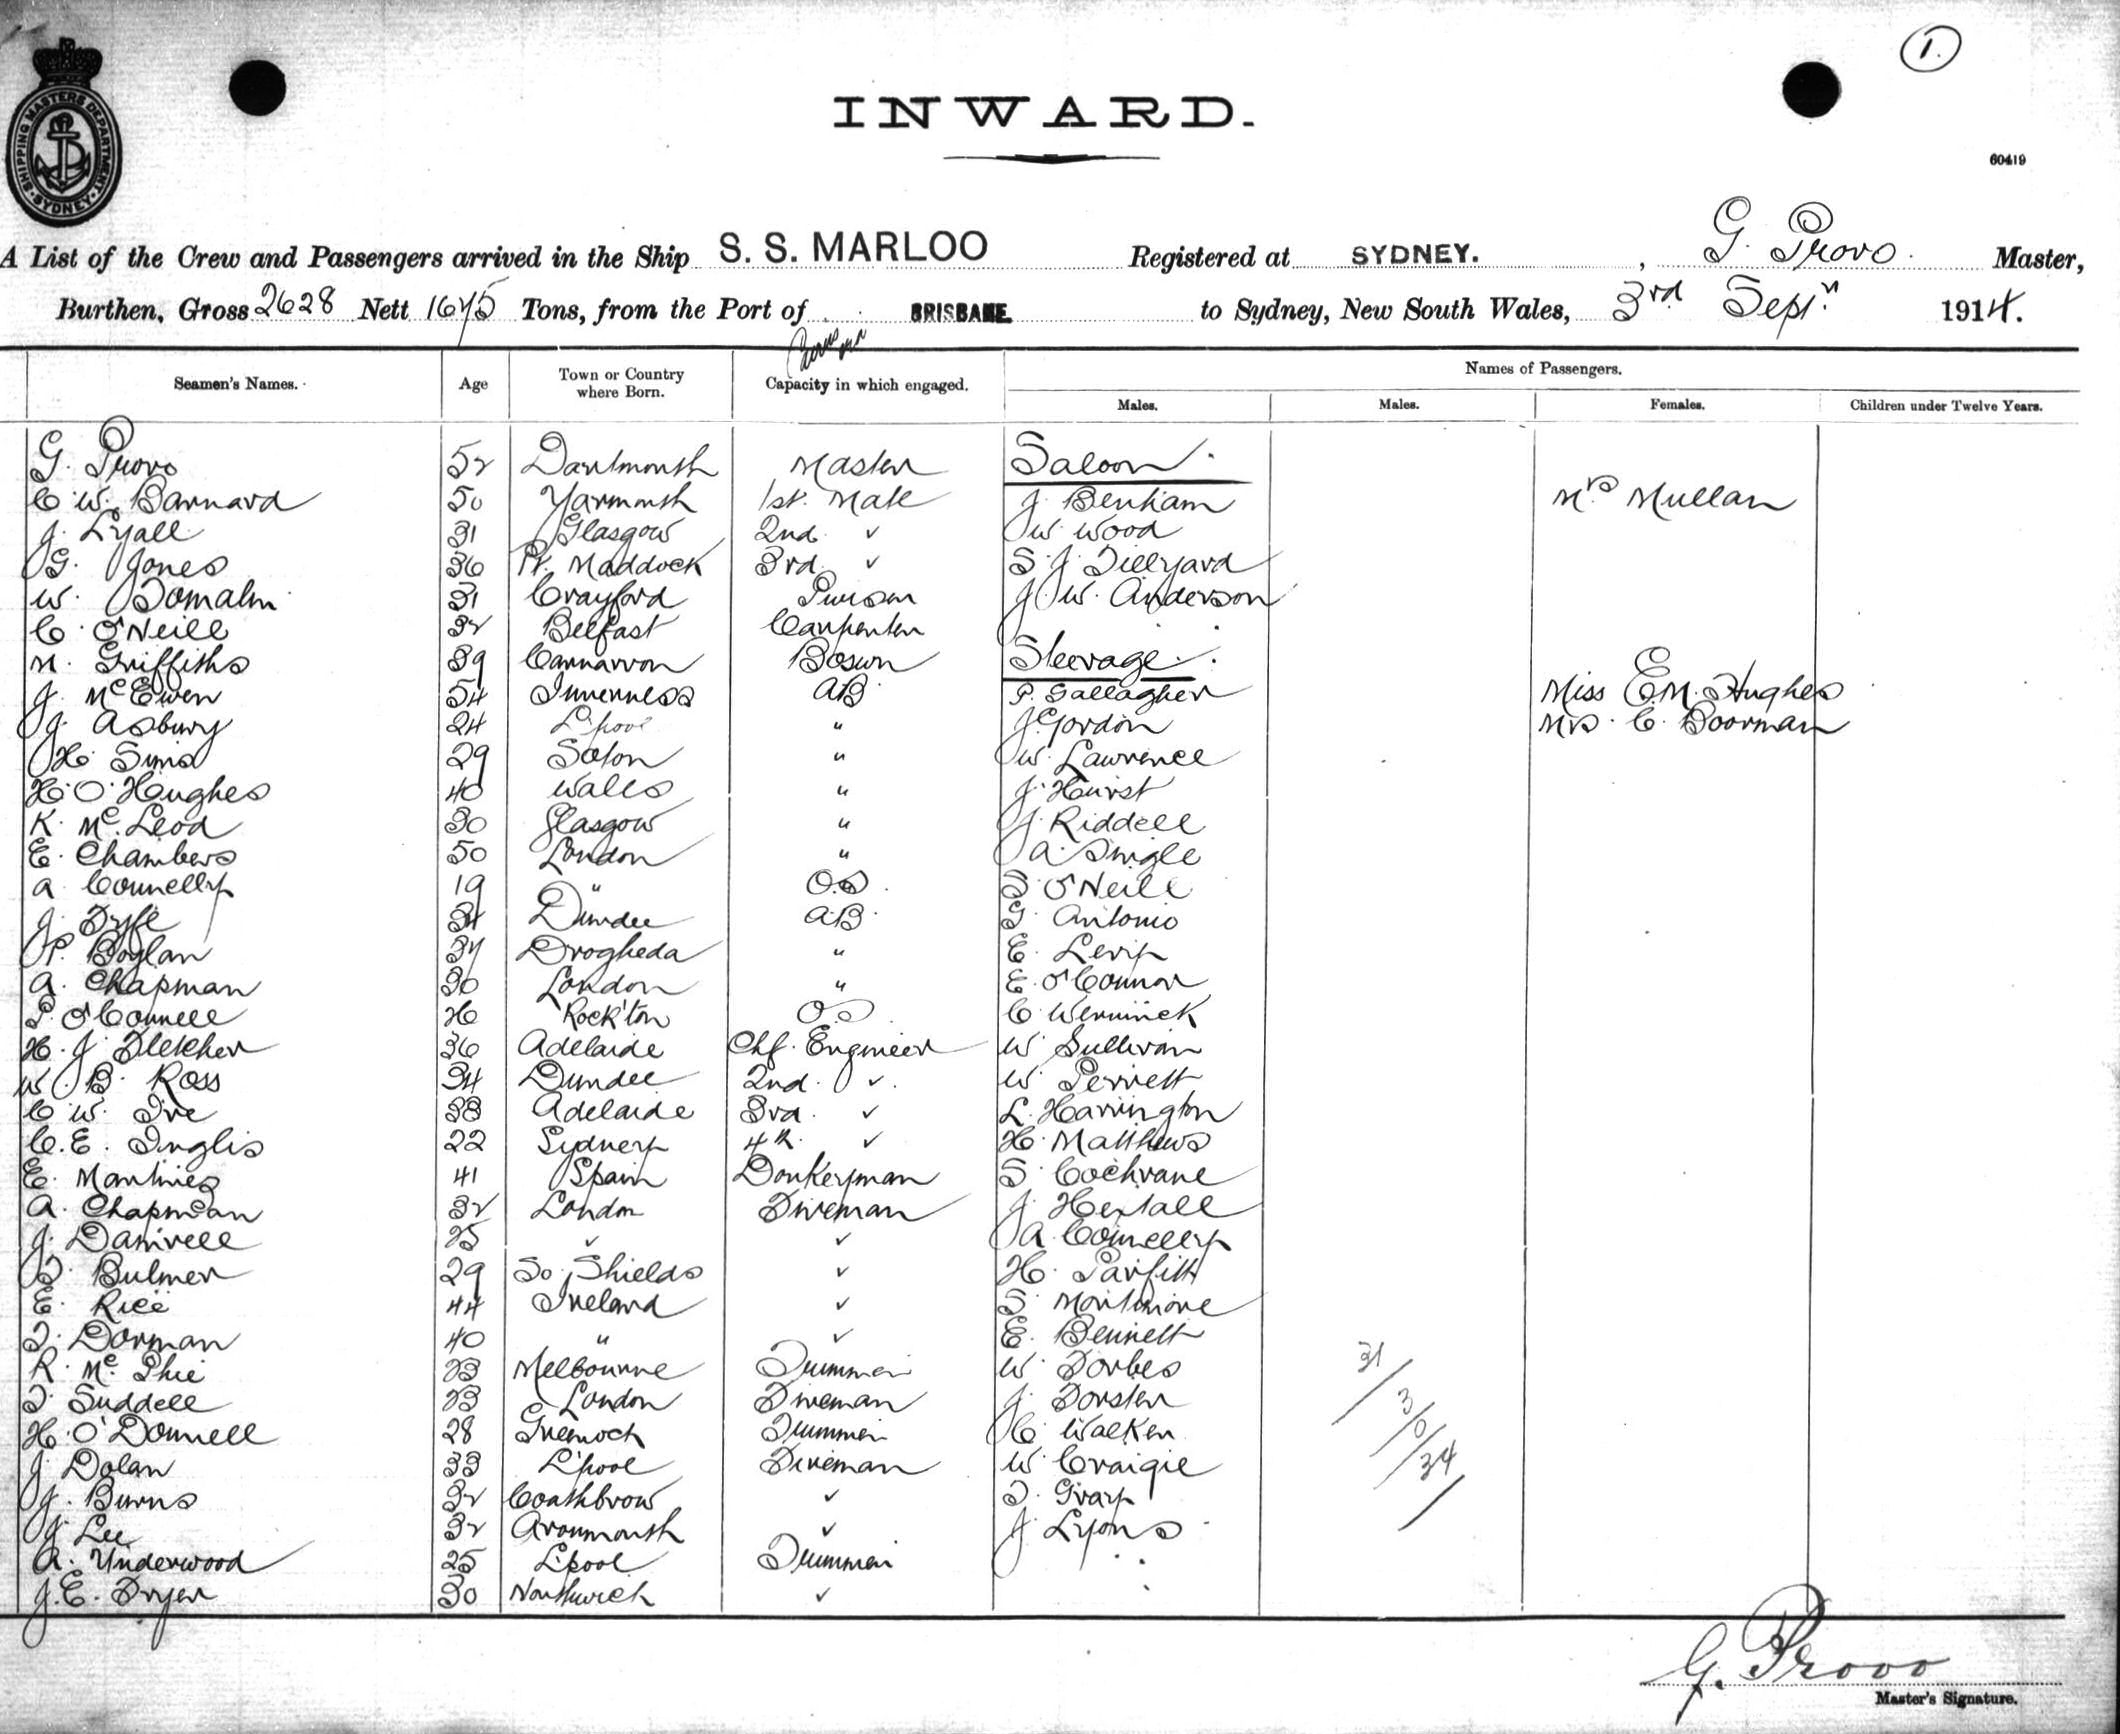 1.
INWARD.
60419
SHIPPING MASTERS DEPARTMENT SYDNEY
A List of the Crew and Passengers arrived in the Ship S. S. MARLOO Registered at SYDNEY. , G. Provo Master,
Burthen, Gross 2628 Nett 1675 Tons, from the Port of BRISBANE to Sydney, New South Wales, 3rd Sepr. 1914.
Seamen's Names. Age Town or Country where Born. Capacity in which engaged. Names of Passengers.
Males. Males. Females. Children under Twelve Years.
G. Provo 52 Dartmouth Master Saloon
C. W. Barnard 50 Yarmouth 1st. Mate J. Benham Mrs Mullan
J. Lyall 31 Glasgow 2nd. " W. Wood
G. Jones 36 Pt. Maddock 3rd. " S. J. Tillyard
W. 31 Crayford Purser J. W. Anderson
C. O'Neill 32 Belfast Carpenter
M. Griffiths 39 Carnarvon Bosun Steerage.
J. McEwen 54 Inverness AB P. Gallagher Miss E. M. Hughes
J. Asbury 24 L'pool " J. Gordon Mrs. C. Boorman
H. Sims 29 " W. Lawrence
H. O. Hughes 40 Wales " J. Hurst
K. McLeod 30 Glasgow " J. Riddell
E. Chambers 50 London " A. Single
A. Connelly 19 " OS S. O'Neill
J. Fyfe 34 Dundee AB G. Antonio
P. Boylan 37 Drogheda " E. Levy
A. Chapman 30 London " E. O'Connor
P. O'Connell 26 Rock'ton OS C. Wernick
H. J. Fletcher 36 Adelaide Chf. Engineer W. Sullivan
W. B. Ross 34 Dundee 2nd. " W. Perrett
C. W. Ive 38 Adelaide 3rd. " L. Harrington
C. E. Inglis 22 Sydney 4th. " H. Matthews
E. Martines 41 Spain Donkeyman S. Cochrane
A. Chapman 32 London Fireman J.
J. 25 " " A. Connelly
T. Bulmer 29 So. Shields " H. Parfitt
E. Rice 44 Ireland " S. Mortimore
T. Dorman 40 " " E. Bennett
R. McPhie 23 Melbourne Trimmer W. Forbes
T. Suddell 23 London Fireman J. Forster
H. O'Donnell 28 Greenock Trimmer C. Walker
J. Dolan 33 L'pool Fireman W. Craigie
J. Burns 32 " T. Gray
J. Lee 32 Avonmouth " J. Lyons
A. Underwood 25 L'pool Trimmer
J. E. Dryer 30 Northwich "
31
3
0
34
G. Provo
Master's Signature.